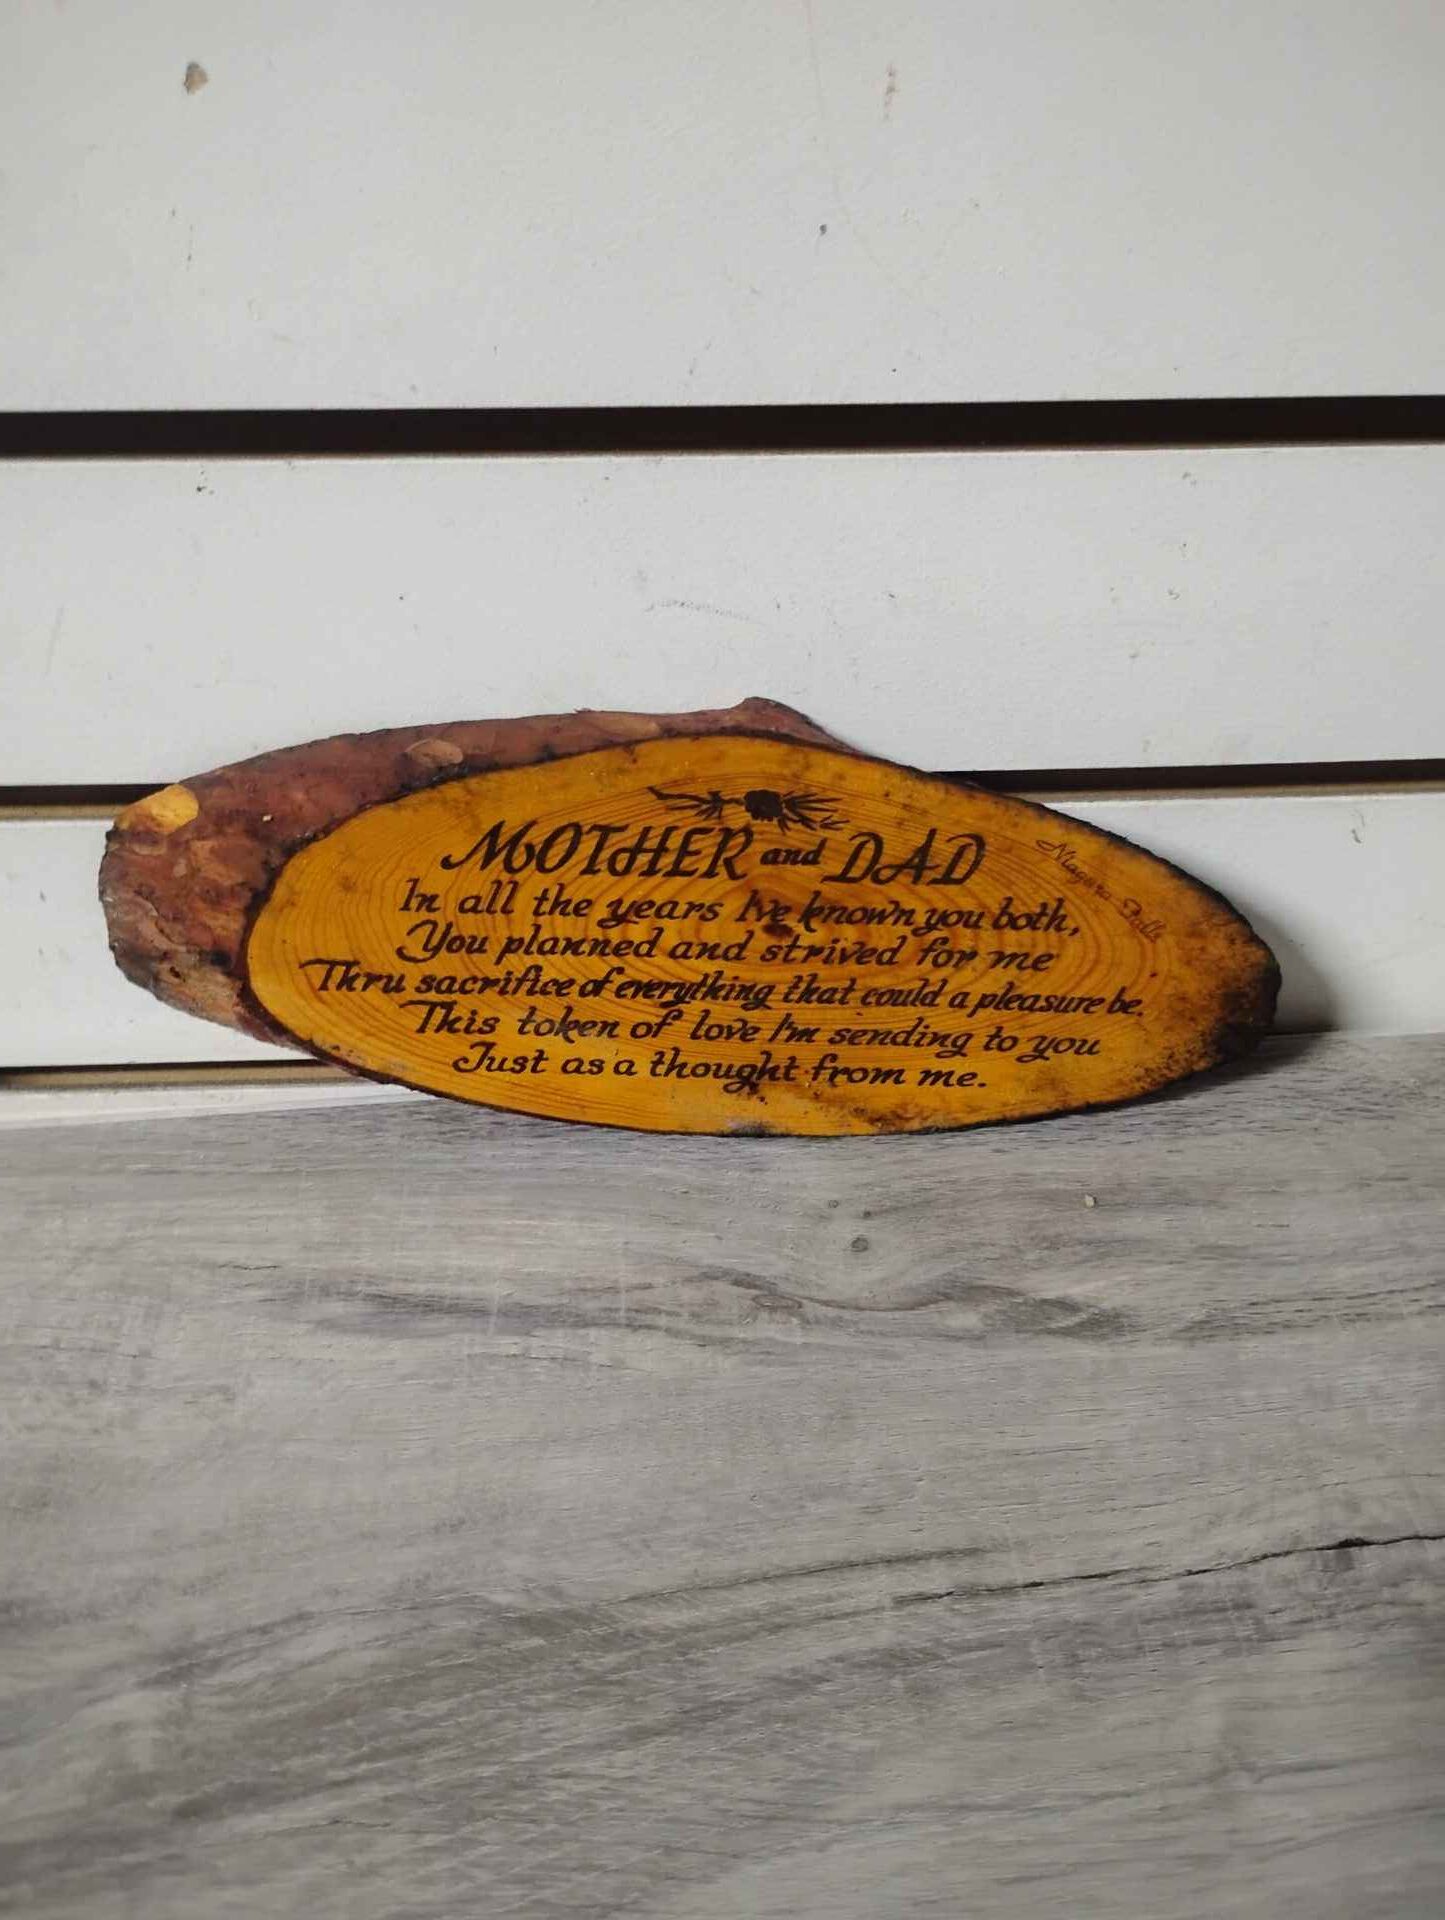 MOTHER and DAD
In all the years I've known you both,
You planned and strived for me
Thru sacrifice of everything that could a pleasure be.
This token of love I'm sending to you
Just as a thought from me.
Niagara Falls